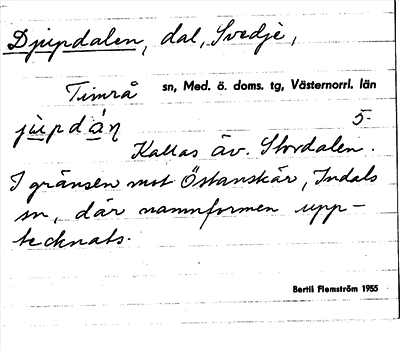 Djupdalen, dal, Svedje,
Timrå sn, Med. ö. doms. tg, Västernorrl. län
jùpdáṇ 5.
Kallas äv. Stordalen.
I gränsen mot Östanskär, Indals
sn, där namnformen upp-
tecknats.
Bertil Flemström 1955